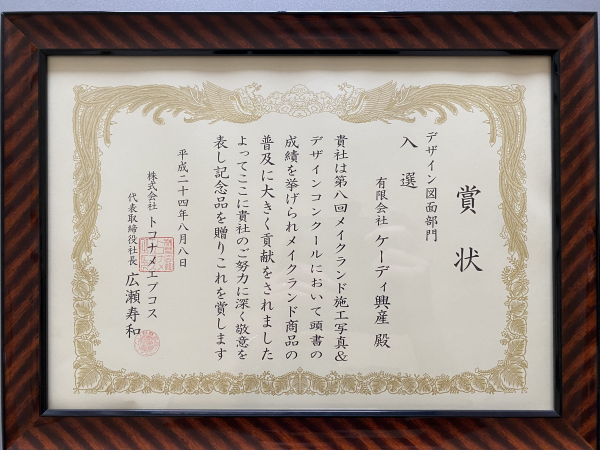 賞状
デザイン図面部門
入選
有限会社 ケーディ興産 殿
貴社は第八回メイクランド施工写真&
デザインコンクールにおいて頭書の
成績を挙げられメイクランド商品の
普及に大きく貢献をされました
よってここに貴社のご努力に深く敬意を
表し記念品を贈りこれを賞します
平成二十四年八月八日
株式会社 トコナメエプコス
代表取締役社長 広瀬寿和